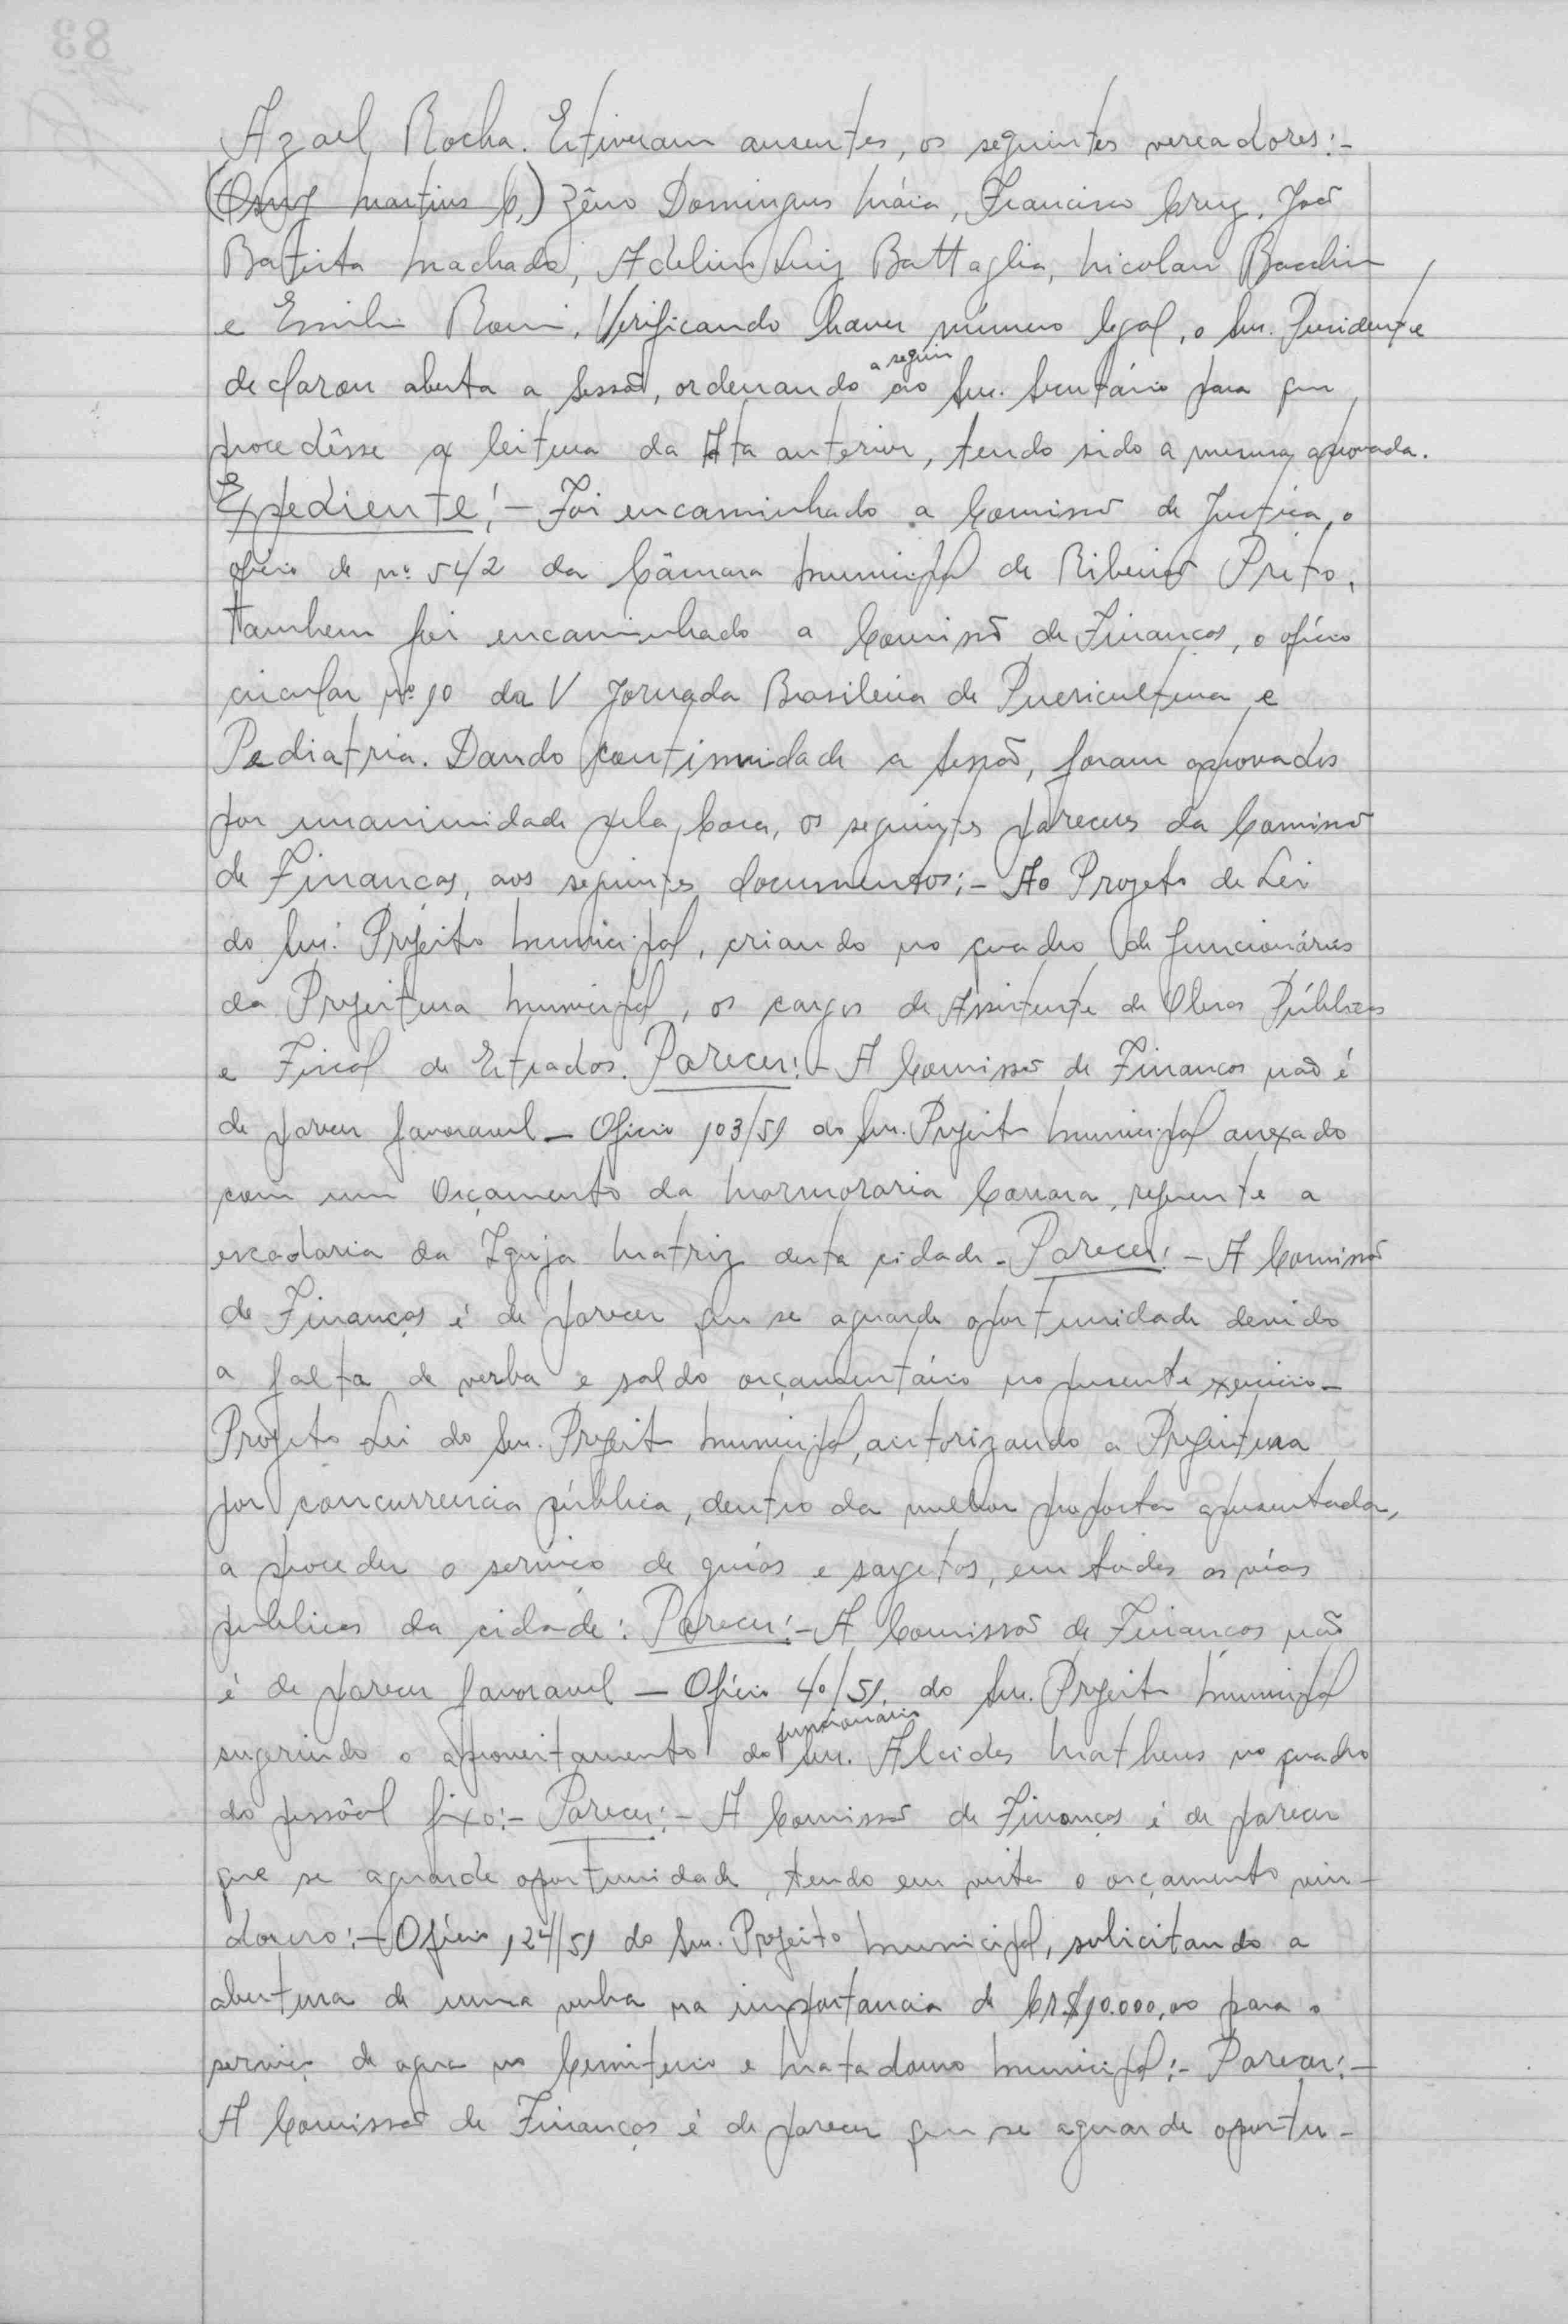 Azael Rocha. Estiveram ausentes, os seguintes vereadores:-
(Osny Martins C.) Zêno Domingues Máia, Francisco Cruz, João
Batista Machado, Adelino Luiz Battaglia, Nicolau Bacchin
e Emilio Romi. Verificando haver número legal, o Snr. Presidente
declarou aberta a Sessão, ordenando a seguir ao Snr. Secretário para que
procedêsse a leitura da Ata anterior, tendo sido a mesma aprovada.
Expediente:- Foi encaminhado a Comissão de Justiça, o
ofício de nº 542 da Câmara Municipal de Ribeirão Preto.
Tambem foi encaminhado a Comissão de Finanças, o ofício
circular nº 10 da V Jornada Brasileira de Puericultura e
Pediatria. Dando continuidade a Sessão, foram aprovados
por unanimidade pela Casa, os seguintes pareceres da Comissão
de Finanças, aos seguintes documentos:- Ao Projeto de Lei
do Snr. Prefeito Municipal, criando no quadro de funcionários
da Prefeitura Municipal, os cargos de Assistente de Obras Públicas
e Fiscal de Estradas. Parecer:- A Comissão de Finanças não é
de parecer favoravel - Oficio 103/51 do Snr. Prefeito Municipal anexado
com um Orçamento da Marmoraria Carrara, referente a
escadaria da Igreja Matriz desta cidade. Parecer:- A Comissão
de Finanças é de parecer que se aguarde oportunidade devido
a falta de verba e saldo orçamentário no presente exercicio-
Projeto Lei do Snr. Prefeito Municipal, autorizando a Prefeitura
por concurrencia pública, dentro da melhor proposta apresentada,
a proceder o serviço de guias e sargetas, em todas as vias
publicas da cidade: Parecer:- A Comissão de Finanças não
é de parecer favoravel - Ofício 40/51. do Snr. Prefeito Municipal
sugerindo o aproveitamento do funcionário Snr. Alcides Matheus no quadro
do pessôal fixo:- Parecer:- A Comissão de Finanças é de parecer
que se aguarde oportunidade, tendo em vista o orçamento vin-
douro:- Ofício 124/51 do Snr. Prefeito Municipal, solicitando a
abertura de uma verba na importancia de Cr.$10.000,00 para o
serviço de agua no Cemiterio e Matadouro Municipal:- Parecer:-
A Comissão de Finanças é de parecer que se aguarde oportu-
83